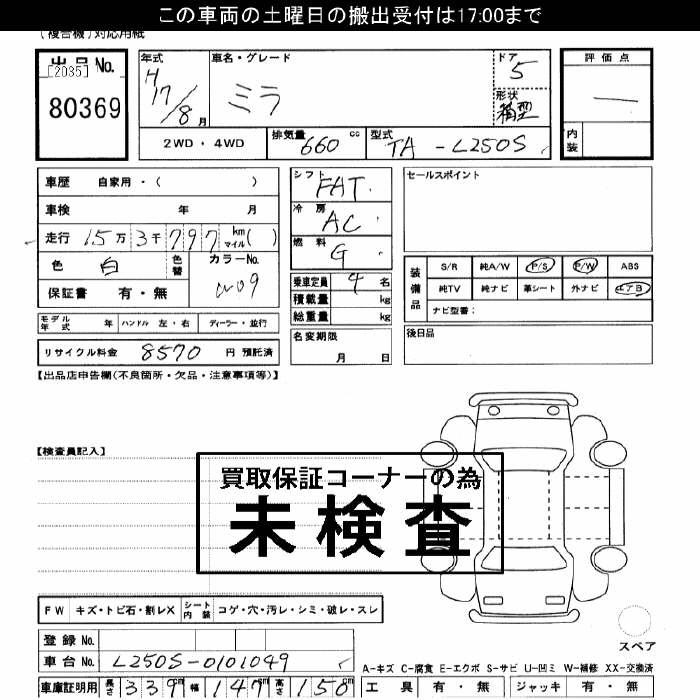 この車両の土曜日の搬出受付は17:00まで
(複合機)対応用紙
出品No.
[2035]
80369
年式 H17/8月
車名・グレード ミラ
ドア 5
形状 箱型
2WD・4WD 排気量 660 cc 型式 TA-L250S
評価点
内装
車歴 自家用・( )
車検 年 月
走行 15万3千797 km マイル( )
色 白 色替 カラーNo. W09
保証書 有・無
シフト FAT
冷房 AC
燃料 G
乗車定員 4名
積載量 kg
総重量 kg
名変期限 月 日
セールスポイント
装備品 S/R 純A/W P/S P/W ABS
純TV 純ナビ 革シート 外ナビ エアB
ナビ型番:
後日品
モデル年式 年 ハンドル 左・右 ディーラー・並行
リサイクル料金 8570 円 預託済
【出品店申告欄(不良箇所・欠品・注意事項等)】
【検査員記入】
買取保証コーナーの為
未検査
FW キズ・トビ石・割レX シート内装 コゲ・穴・汚レ・シミ・破レ・スレ
登録No.
車台No. L250S-0101049
スペア
A-キズ C-腐食 E-エクボ S-サビ U-凹ミ W-補修 XX-交換済
車庫証明用 長さ 339cm 幅 147cm 高さ 150cm
工具 有・無 ジャッキ 有・無